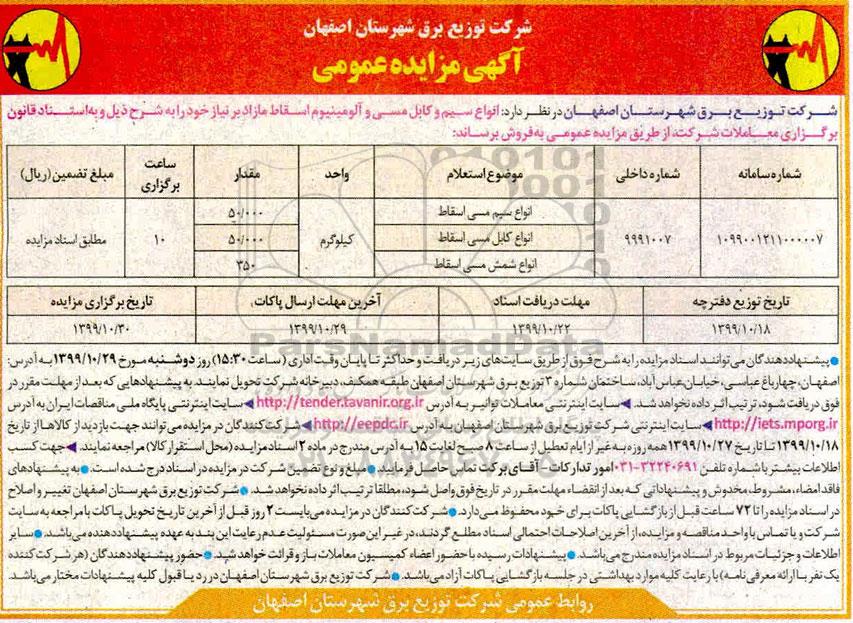 شرکت توزیع برق شهرستان اصفهان
آگهی مزایده عمومی
شرکت توزیع برق شهرستان اصفهان در نظر دارد: انواع سیم و کابل مسی و آلومینیوم اسقاط مازاد بر نیاز خود را به شرح ذیل و به استناد قانون
برگزاری معاملات شرکت، از طریق مزایده عمومی به فروش برساند:
شماره سامانه شماره داخلی موضوع استعلام واحد مقدار ساعت برگزاری مبلغ تضمین (ریال)
۱۰۹۹۰۰۱۲۱۱۰۰۰۰۰۷ ۹۹۹۱۰۰۷ انواع سیم مسی اسقاط کیلوگرم ۵۰/۰۰۰ ۱۰ مطابق اسناد مزایده
انواع کابل مسی اسقاط ۵۰/۰۰۰
انواع شمش مسی اسقاط ۳۵۰
تاریخ توزیع دفترچه مهلت دریافت اسناد آخرین مهلت ارسال پاکات تاریخ برگزاری مزایده
۱۳۹۹/۱۰/۱۸ ۱۳۹۹/۱۰/۲۲ ۱۳۹۹/۱۰/۲۹ ۱۳۹۹/۱۰/۳۰
ParsNamadData
● پیشنهاددهندگان می‌توانند اسناد مزایده را به شرح فوق از طریق سایت‌های زیر دریافت و حداکثر تا پایان وقت اداری (ساعت ۱۵:۳۰) روز دوشنبه مورخ ۱۳۹۹/۱۰/۲۹ به آدرس:
اصفهان، چهارباغ عباسی، خیابان عباس آباد، ساختمان شماره ۳ توزیع برق شهرستان اصفهان طبقه همکف، دبیرخانه شرکت تحویل نمایند. به پیشنهادهایی که بعد از مهلت مقرر در
فوق دریافت شود، ترتیب اثر داده نخواهد شد. ◄ سایت اینترنتی معاملات توانیر به آدرس http://tender.tavanir.org.ir ◄ سایت اینترنتی پایگاه ملی مناقصات ایران به آدرس
http://iets.mporg.ir ◄ سایت اینترنتی شرکت توزیع برق شهرستان اصفهان به آدرس http://eepdc.ir ◄ شرکت کنندگان در مزایده می‌توانند جهت بازدید از کالاها از تاریخ
۱۳۹۹/۱۰/۱۸ تا تاریخ ۱۳۹۹/۱۰/۲۷ همه روزه به غیر از ایام تعطیل از ساعت ۸ صبح لغایت ۱۵ به آدرس مندرج در ماده ۲ اسناد مزایده (محل استقرار کالا) مراجعه نمایند. ◄ جهت کسب
اطلاعات بیشتر با شماره تلفن ۳۲۲۴۰۶۹۱-۰۳۱ امور تدارکات - آقای برکت تماس حاصل فرمایید ● مبلغ و نوع تضمین شرکت در مزایده در اسناد درج شده است. ● به پیشنهادهای
فاقد امضاء، مشروط، مخدوش و پیشنهاداتی که بعد از انقضاء مهلت مقرر در تاریخ فوق واصل شود، مطلقا ترتیب اثر داده نخواهد شد. ● شرکت توزیع برق شهرستان اصفهان تغییر و اصلاح
در اسناد مزایده را تا ۷۲ ساعت قبل از بازگشایی پاکات برای خود محفوظ می‌دارد. ● شرکت کنندگان در مزایده می‌بایست ۲ روز قبل از آخرین تاریخ تحویل پاکات با مراجعه به سایت
شرکت و یا تماس با واحد مناقصه و مزایده، از آخرین اصلاحات احتمالی اسناد مطلع گردند، در غیر این صورت مسئولیت عدم رعایت این بند به عهده پیشنهاد دهنده می‌باشد. ● سایر
اطلاعات و جزئیات مربوط در اسناد مزایده مندرج می‌باشد. ● پیشنهادات رسیده با حضور اعضاء کمیسیون معاملات باز و قرائت خواهد شد. ● حضور پیشنهاددهندگان (هر شرکت کننده
یک نفر با ارائه معرفی نامه) با رعایت کلیه موارد بهداشتی در جلسه بازگشایی پاکات آزاد می‌باشد. ● شرکت توزیع برق شهرستان اصفهان در رد یا قبول کلیه پیشنهادات مختار می‌باشد.
روابط عمومی شرکت توزیع برق شهرستان اصفهان